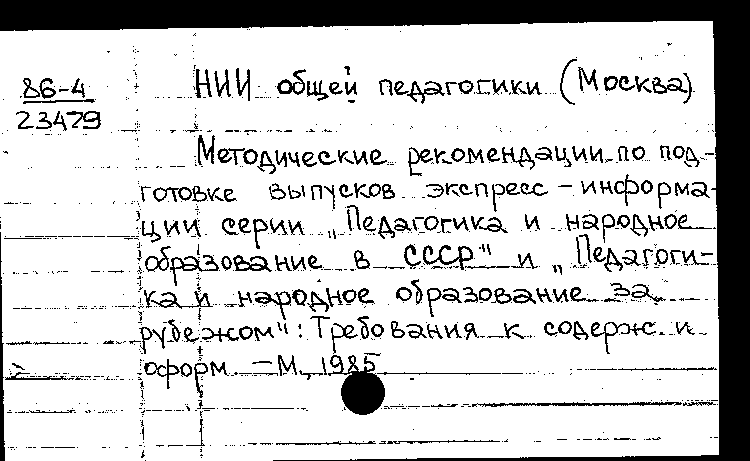 86-4
23479
НИИ общей педагогики (Москва)
Методические рекомендации по под-
готовке выпусков экспресс-информа-
ции серии „Педагогика и народное
образование в СССР" и „Педагоги-
ка и народное образование за
рубежом": Требования к содерж. и
оформ. — М., 1985.